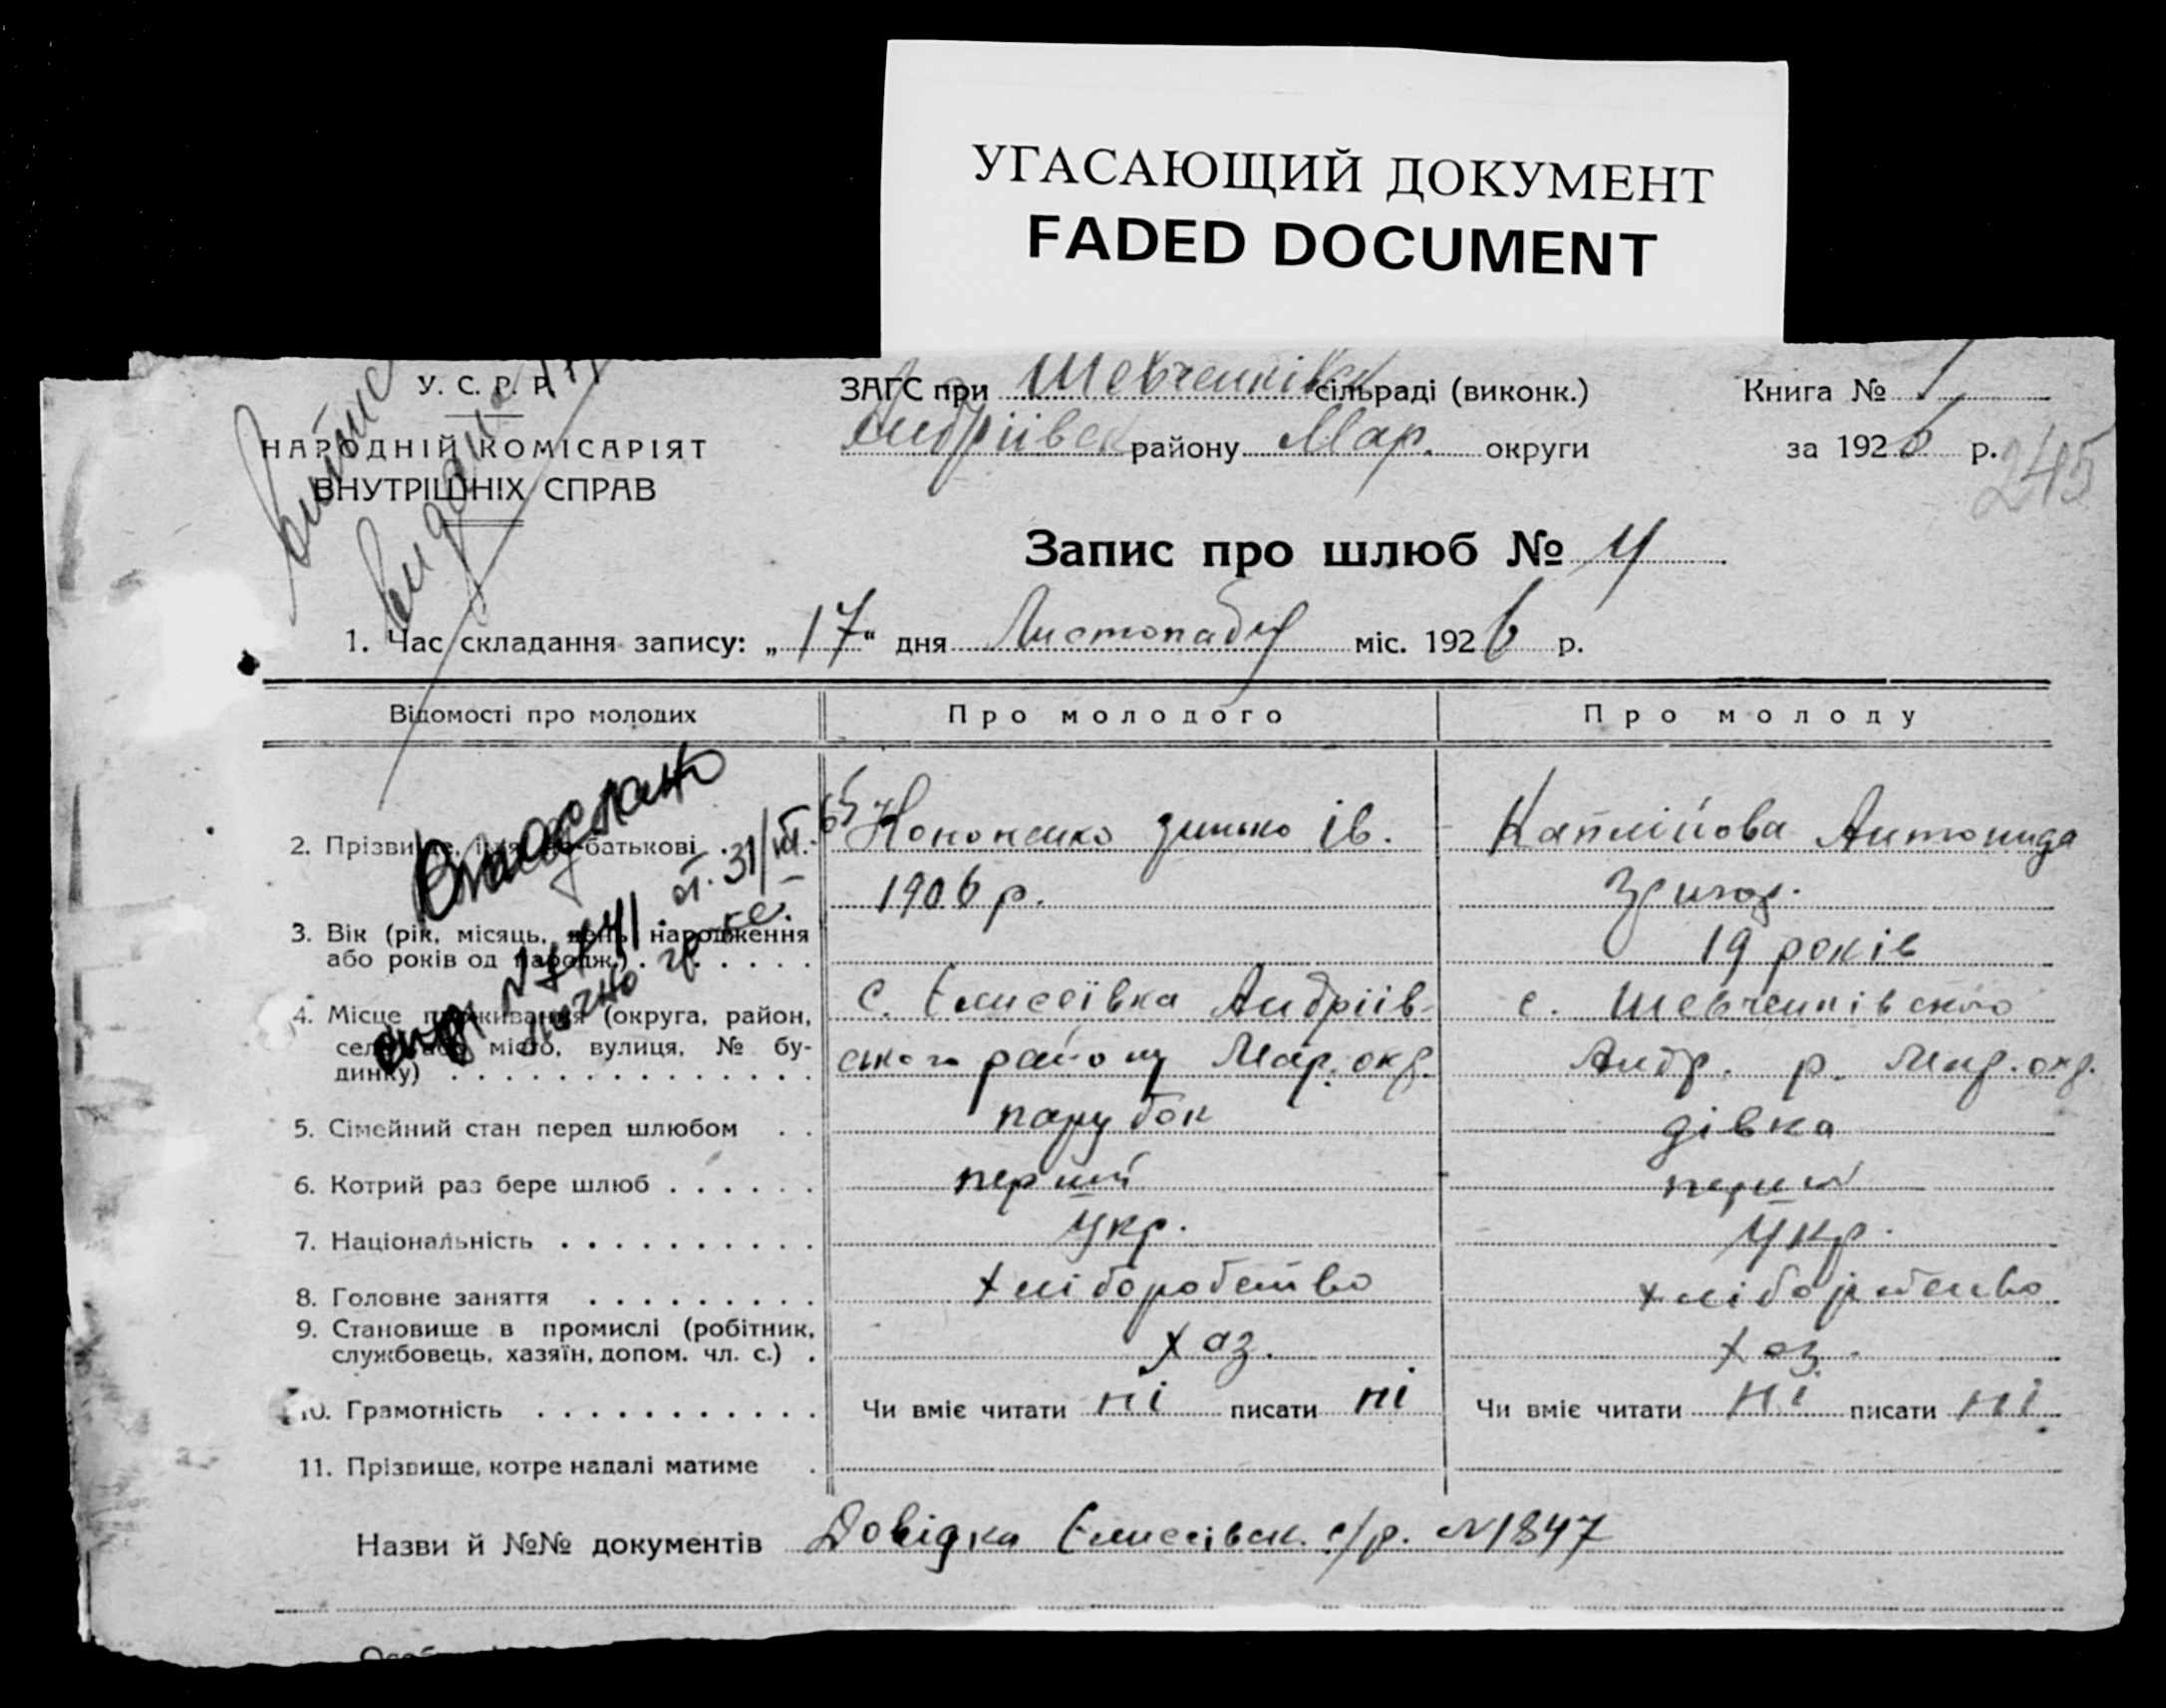 УГАСАЮЩИЙ ДОКУМЕНТ
FADED DOCUMENT
У. С. Р. Р.
НАРОДНІЙ КОМІСАРІЯТ
ВНУТРІШНІХ СПРАВ
ЗАГС при Шевченківск сільраді (виконк.)
Андріівск району Мар. округи
Книга № 1
за 1926 р.
245
Запис про шлюб № 4
1. Час складання запису: „17“ дня Листопаду міс. 1926 р.
Відомості про молодих Про молодого Про молоду
2. Прізвище, імя, по-батькові Кононенко Ів. Антонида
1906 р.
3. Вік (рік, місяць, день народження
або років од народж.) 19 років
4. Місце проживання (округа, район, с. Елисеївка Андріів- с. Шевченківского
село або місто, вулиця, № бу- ского району Мар. окр. Андр. р. Мар. окр.
динку)
5. Сімейний стан перед шлюбом парубок дівка
6. Котрий раз бере шлюб перший
7. Національність Укр. Укр.
8. Головне заняття хліборобство хліборобство
9. Становище в промислі (робітник,
службовець, хазяїн, допом. чл. с.) хаз. хаз.
10. Грамотність Чи вміє читати ні писати ні Чи вміє читати ні писати ні
11. Прізвище, котре надалі матиме
Назви й №№ документів Довідка Елисеівск. с/р. N1847